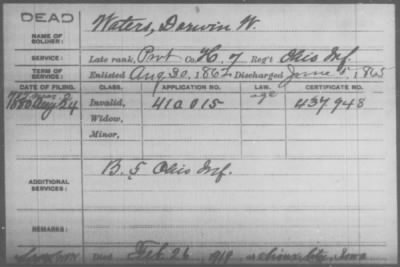 DEAD
NAME OF SOLDIER: Waters, Darwin W.
SERVICE: Late rank, Pvt Co. H. 7 Reg't Ohio Inf.
TERM OF SERVICE: Enlisted Aug 20, 1862 Discharged June 5, 1865
DATE OF FILING. CLASS. APPLICATION NO. LAW. CERTIFICATE NO.
1880 Aug 24 Invalid, 410015 437948
Widow,
Minor,
ADDITIONAL SERVICES: B. 5 Ohio Inf.
REMARKS:
Died Feb 26, 1918, at Sioux City, Iowa